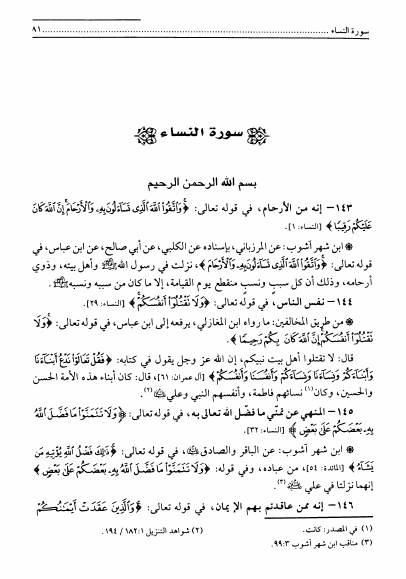 سورة النساء ........................................................ ٩١
سورة النساء
بسم الله الرحمن الرحيم
١٤٣ – إنه من الأرحام، في قوله تعالى: ﴿وَاتَّقُوا اللَّهَ الَّذِي تَسَاءَلُونَ بِهِ وَالْأَرْحَامَ إِنَّ اللَّهَ كَانَ
عَلَيْكُمْ رَقِيبًا﴾ [النساء: ١].
* ابن شهر آشوب: عن المرزباني، بإسناده عن الكلبي، عن أبي صالح، عن ابن عباس، في
قوله تعالى: ﴿وَاتَّقُوا اللَّهَ الَّذِي تَسَاءَلُونَ بِهِ وَالْأَرْحَامَ﴾، نزلت في رسول الله ﷺ وأهل بيته، وذوي
أرحامه، وذلك أن كل سبب ونسب منقطع يوم القيامة، إلا ما كان من سببه ونسبه ﷺ.
١٤٤ – نفس الناس، في قوله تعالى: ﴿وَلَا تَقْتُلُوا أَنْفُسَكُمْ﴾ [النساء: ٢٩].
* من طريق المخالفين: ما رواه ابن المغازلي، يرفعه إلى ابن عباس، في قوله تعالى: ﴿وَلَا
تَقْتُلُوا أَنْفُسَكُمْ إِنَّ اللَّهَ كَانَ بِكُمْ رَحِيمًا﴾.
قال: لا تقتلوا أهل بيت نبيكم، إن الله عز وجل يقول في كتابه: ﴿فَقُلْ تَعَالَوْا نَدْعُ أَبْنَاءَنَا
وَأَبْنَاءَكُمْ وَنِسَاءَنَا وَنِسَاءَكُمْ وَأَنْفُسَنَا وَأَنْفُسَكُمْ﴾ [آل عمران: ٦١]، قال: كان أبناء هذه الأمة الحسن
والحسين، وكان(١) نسائهم فاطمة، وأنفسهم النبي وعلي(٢).
١٤٥ – المنهي عن تمنّي ما فضّل الله تعالى به، في قوله تعالى: ﴿وَلَا تَتَمَنَّوْا مَا فَضَّلَ اللَّهُ
بِهِ بَعْضَكُمْ عَلَى بَعْضٍ﴾ [النساء: ٣٢].
* ابن شهر آشوب: عن الباقر والصادق، في قوله تعالى: ﴿ذَلِكَ فَضْلُ اللَّهِ يُؤْتِيهِ مَنْ
يَشَاءُ﴾ [المائدة: ٥٤]، من عباده، وفي قوله: ﴿وَلَا تَتَمَنَّوْا مَا فَضَّلَ اللَّهُ بِهِ بَعْضَكُمْ عَلَى بَعْضٍ﴾
إنهما نزلتا في علي(٣).
١٤٦ – إنه ممن عاقدتم بهم الإيمان، في قوله تعالى: ﴿وَالَّذِينَ عَقَدَتْ أَيْمَانُكُمْ
(١) في المصدر: كانت.
(٢) شواهد التنزيل ١: ١٨٢ / ١٩٤.
(٣) مناقب ابن شهر آشوب ٣: ٩٩.